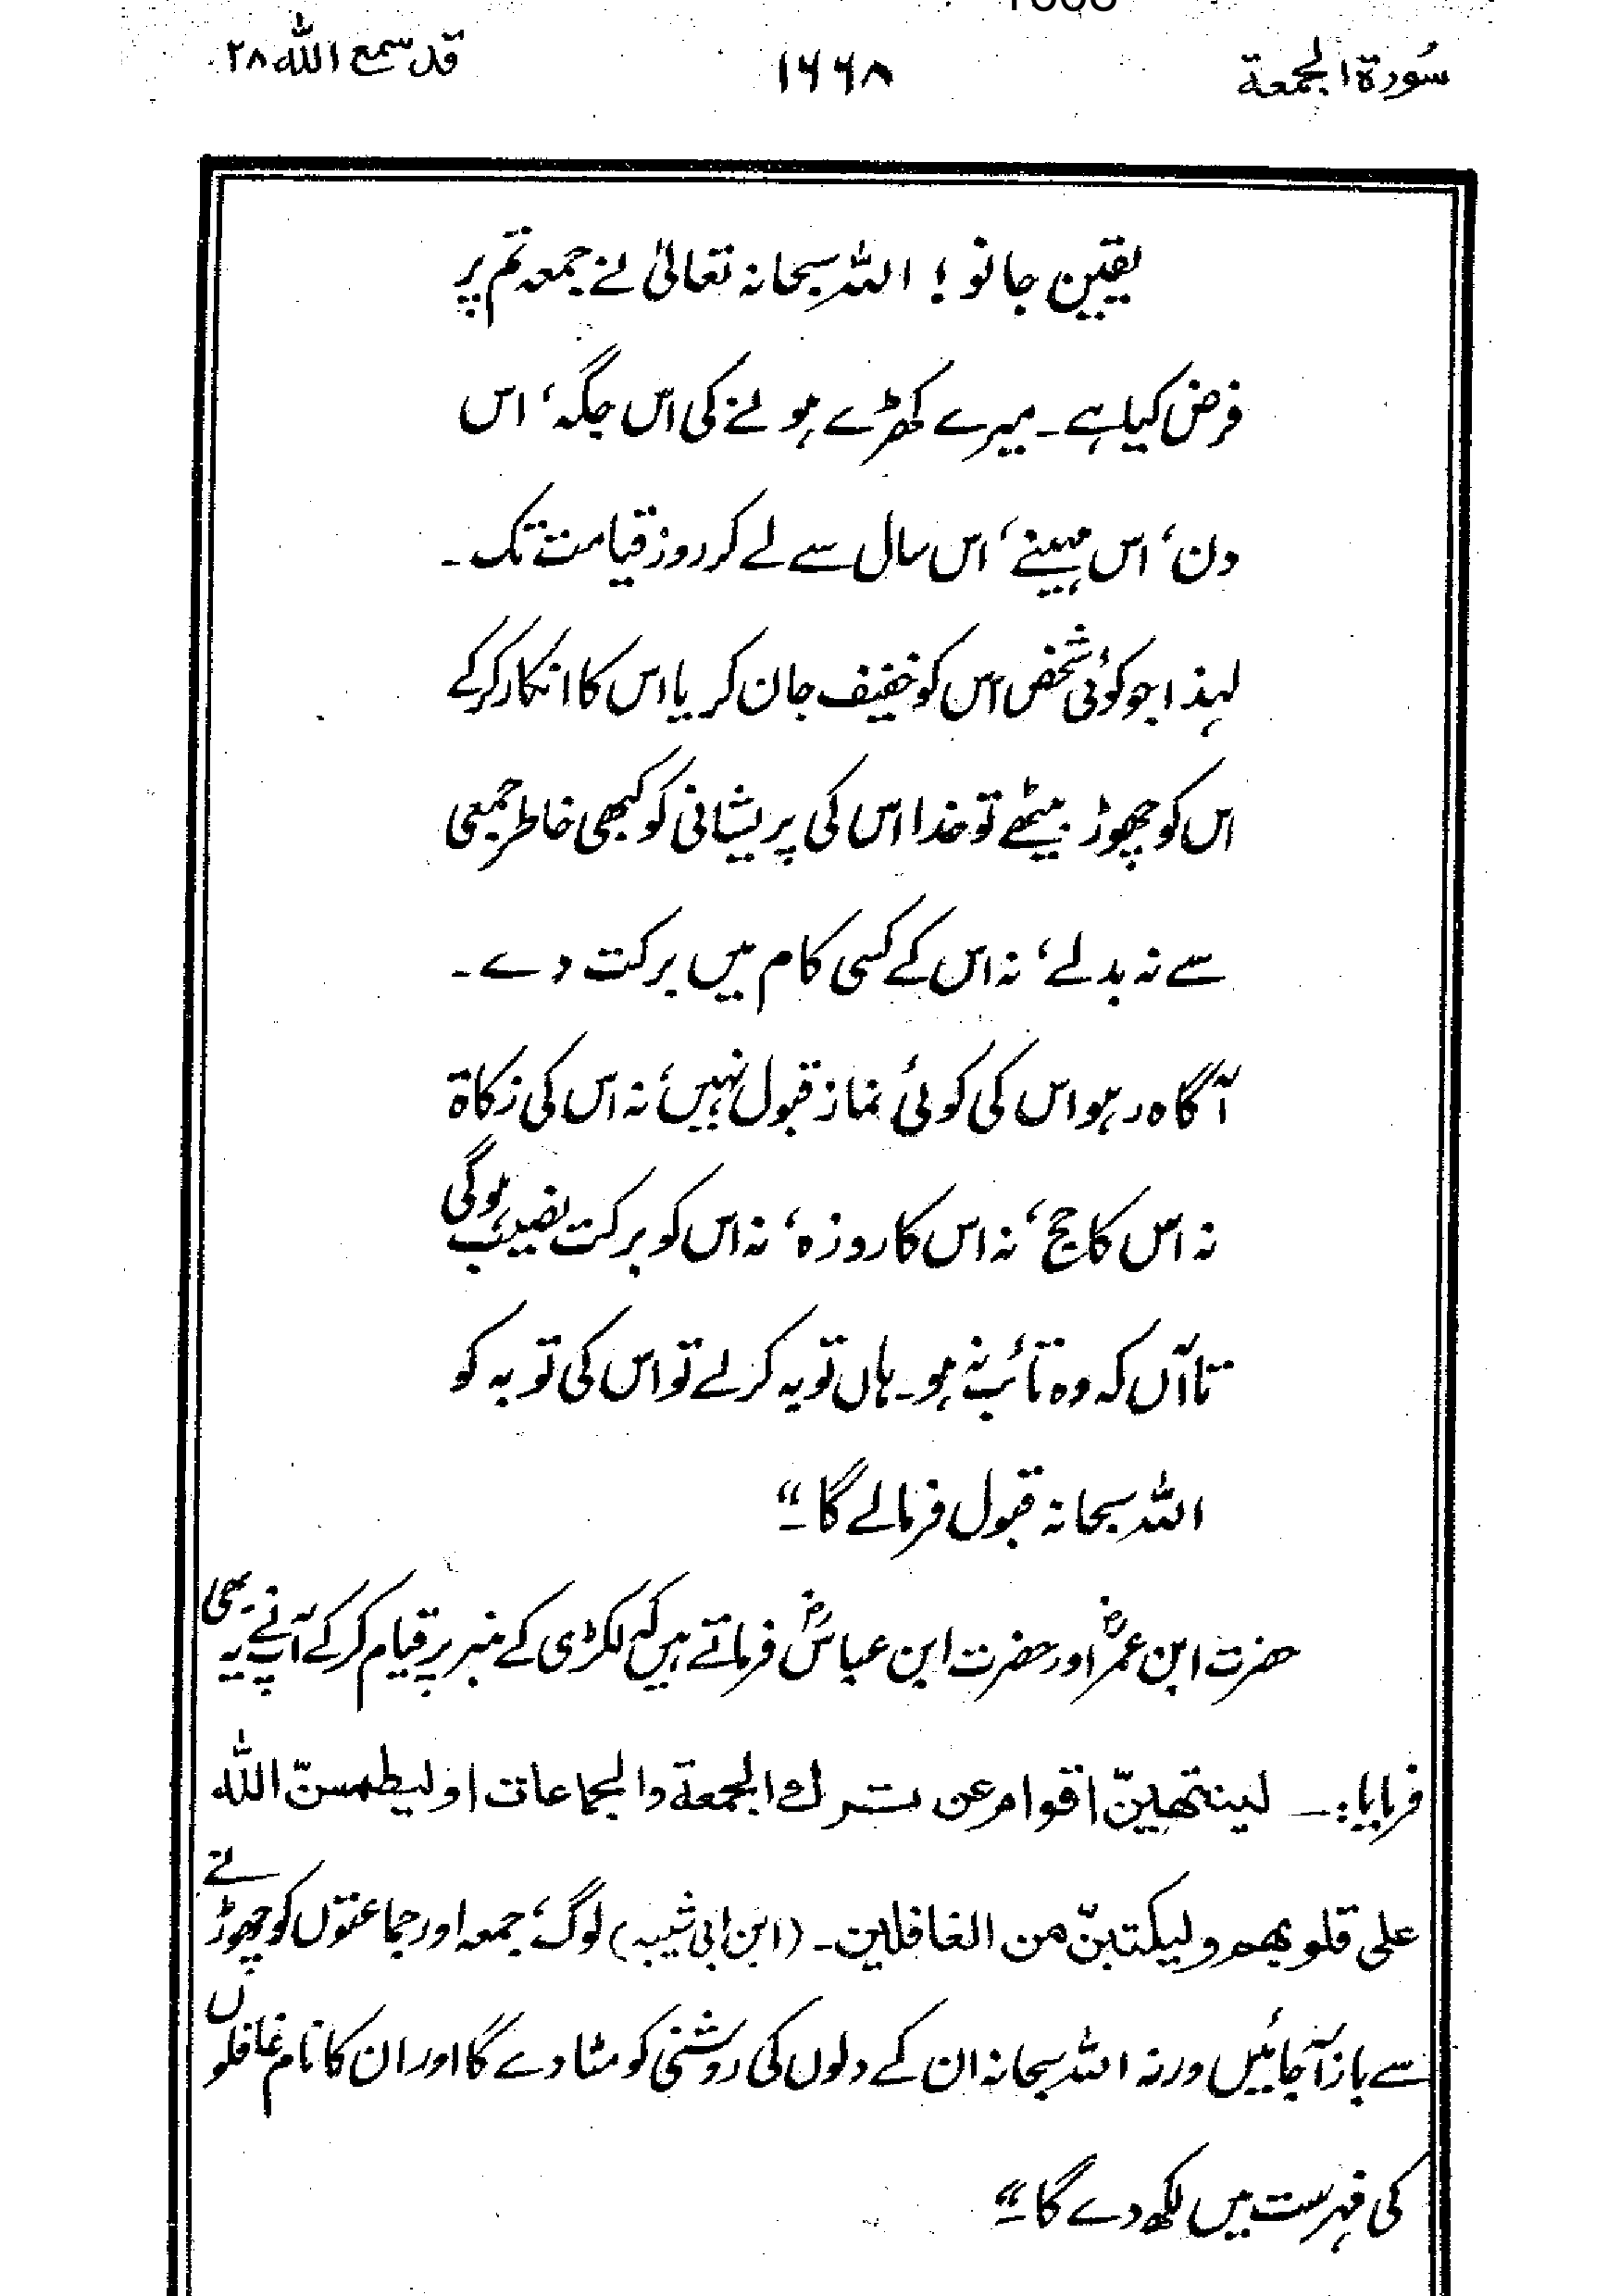 سُورة الجمعة ۱۶۶۸ قد سمع الله ۲۸
یقین جانو! اللہ سبحانہ تعالیٰ نے جمعہ تم پر
فرض کیا ہے۔ میرے کھڑے ہونے کی اس جگہ، اس
دن، اس مہینے، اس سال سے لے کر روز قیامت تک۔
لہذا جو کوئی شخص اس کو خفیف جان کر یا اس کا انکار کرکے
اس کو چھوڑ بیٹھے تو خدا اس کی پریشانی کو کبھی خاطر جمعی
سے نہ بدلے، نہ اس کے کسی کام میں برکت دے۔
آگاہ رہو اس کی کوئی نماز قبول نہیں، نہ اس کی زکاۃ
نہ اس کا حج، نہ اس کا روزہ، نہ اس کو برکت نصیب ہوگی
تا آں کہ وہ تائب نہ ہو۔ ہاں توبہ کرلے تو اس کی توبہ کو
اللہ سبحانہ قبول فرمالے گا۔“
حضرت ابن عمرؓ اور حضرت ابن عباسؓ فرماتے ہیں کہ لکڑی کے منبر پر قیام کرکے آپ نے یہ بھی
فرمایا:۔ لينتهينّ اقوام عن ترك الجمعة والجماعات او ليطمسنّ الله
على قلوبهم وليكتبنّ من الغافلين۔ (ابن ابی شیبہ) لوگ، جمعہ اور جماعتوں کو چھوڑنے
سے باز آجائیں ورنہ اللہ سبحانہ ان کے دلوں کی روشنی کو مٹا دے گا اور ان کا نام غافلوں
کی فہرست میں لکھ دے گا۔“